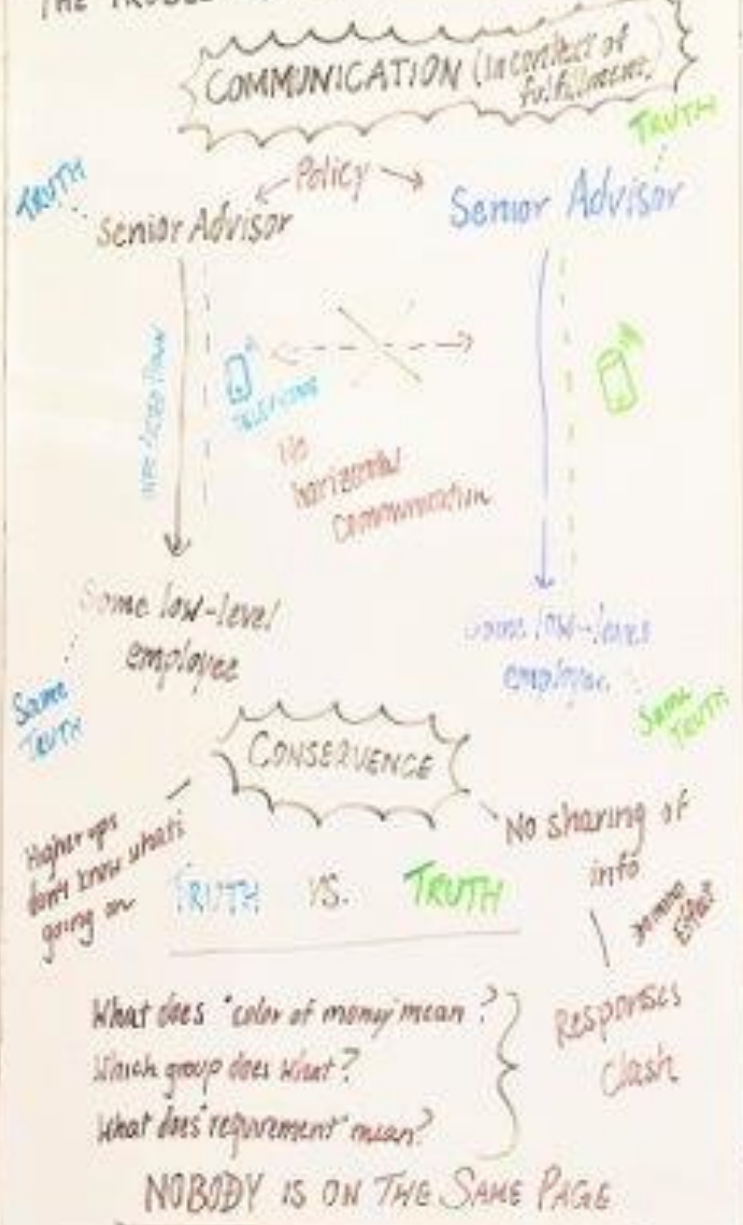 THE
COMMUNICATION (In context of
fulfillment)
TRUTH
TRUTH
Policy
Senior Advisor
Senior Advisor
TELEPHONE
No
horizontal
communication
Some low-level
employee
Some low-level
employee
Same
TRUTH
Same
TRUTH
CONSEQUENCE
Higher ups
don't know what's
going on
No sharing of
info
TRUTH VS. TRUTH
Domino
Effect
Responses
Clash
What does "color of money" mean?
Which group does what?
What does "requirement" mean?
NOBODY IS ON THE SAME PAGE